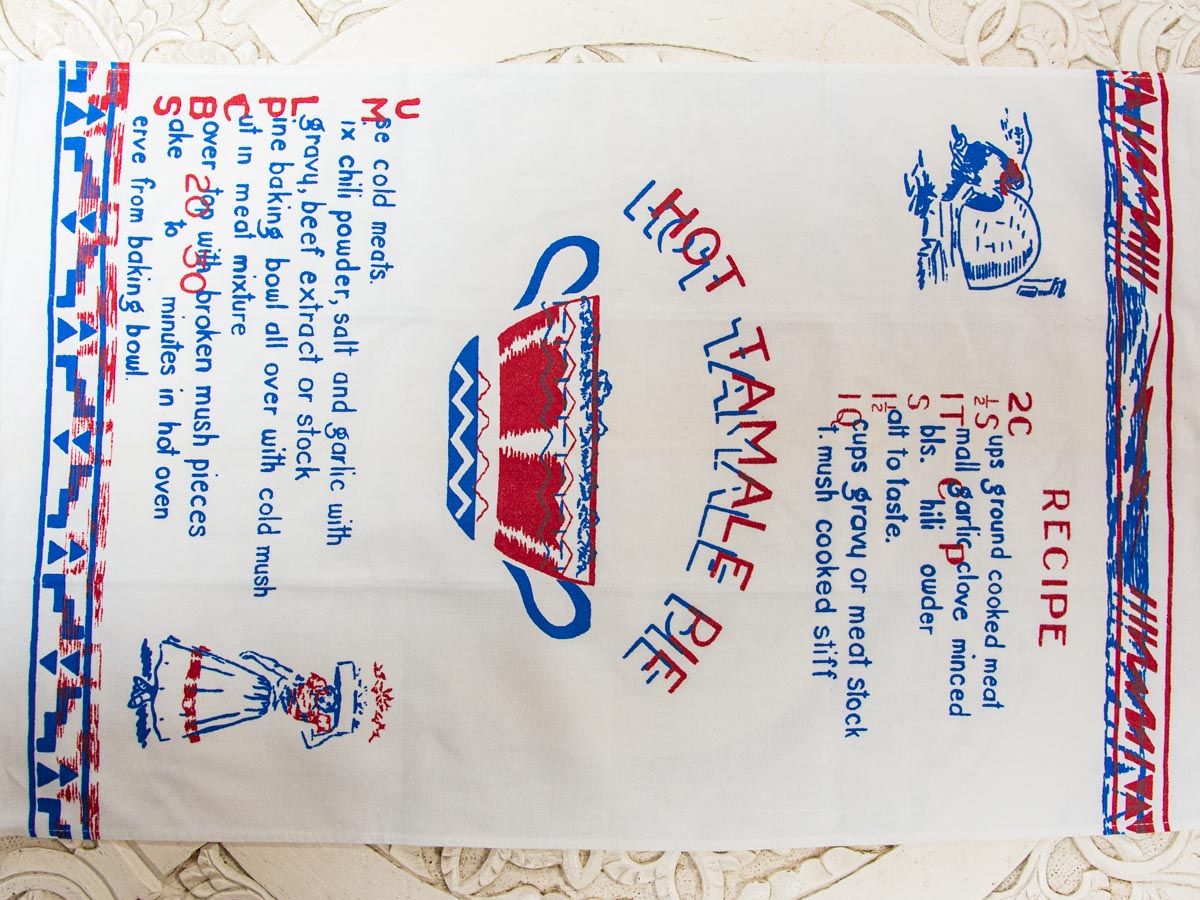 RECIPE
2 Cups ground cooked meat
½ Small garlic clove minced
1 Tbls. chili powder
Salt to taste.
1½ cups gravy or meat stock
1 Qt. mush cooked stiff
HOT TAMALE PIE
Use cold meats.
Mix chili powder, salt and garlic with
gravy, beef extract or stock
Line baking bowl all over with cold mush
Put in meat mixture
Cover top with broken mush pieces
Bake 20 to 30 minutes in hot oven
Serve from baking bowl.